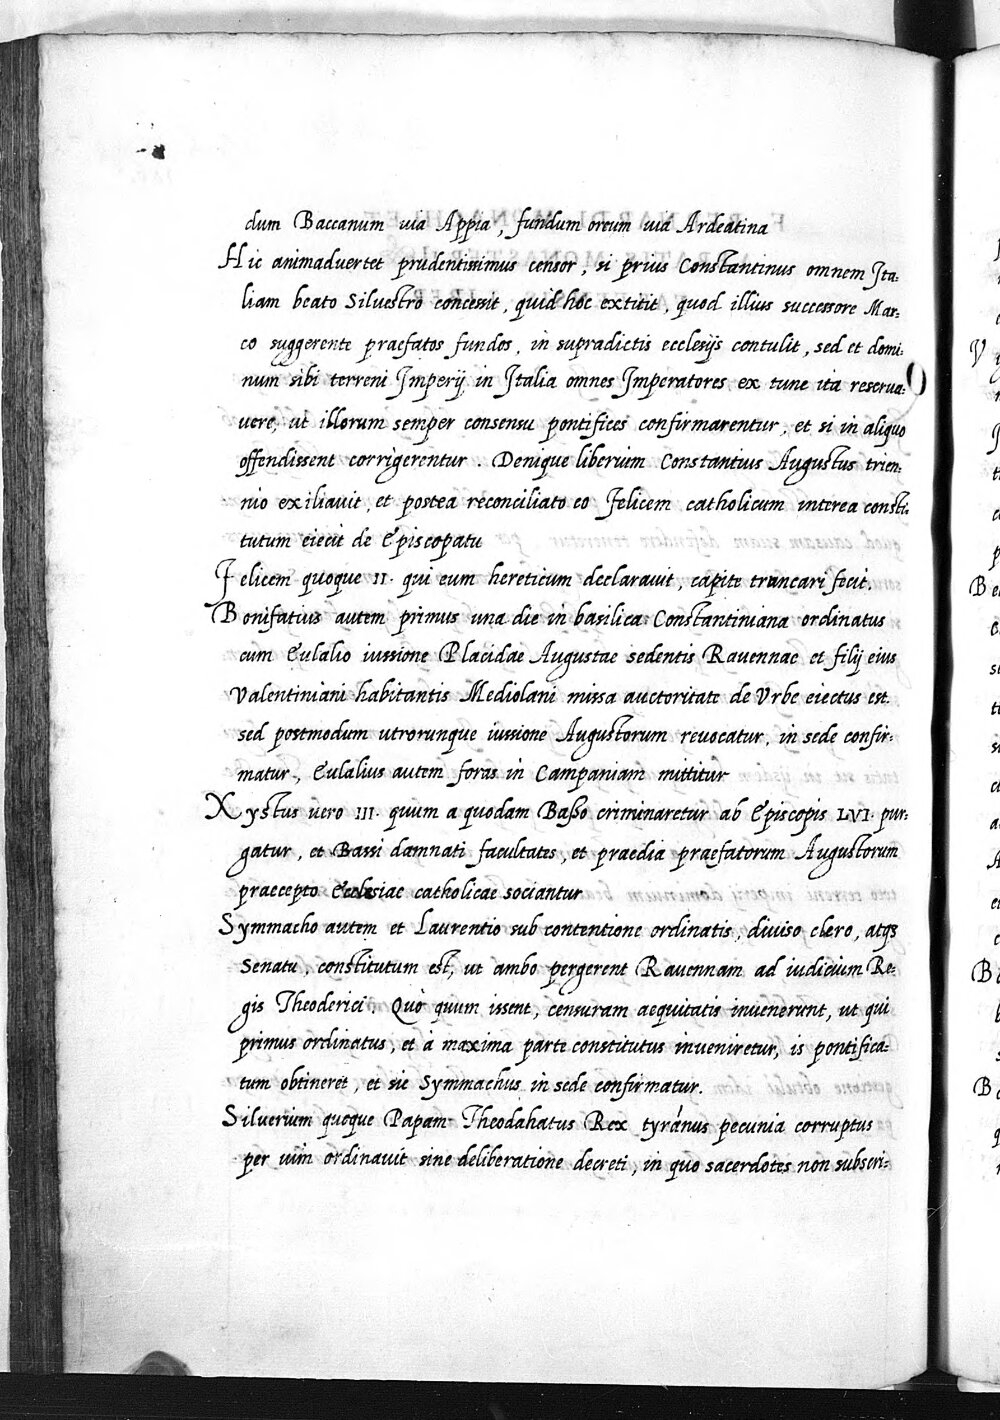 dum Baccanum uia Appia, fundum oreum uia Ardeatina
Hic animaduertet prudentissimus censor, si prius Constantinus omnem Ita-
liam beato Siluestro concessit, quid hoc extitit, quod illius successore Mar-
co suggerente praefatos fundos, in supradictis ecclesijs contulit, sed et domi-
num sibi terreni Imperij in Italia omnes Imperatores ex tunc ita reserua-
uere, ut illorum semper consensu pontifices confirmarentur, et si in aliquo
offendissent corrigerentur. Denique liberium Constantius Augustus trien-
nio exiliauit, et postea reconciliato eo Felicem catholicum interea consti-
tutum eiecit de Episcopatu
Felicem quoque II. qui eum hereticum declarauit, capite truncari fecit.
Bonifatius autem primus una die in basilica Constantiniana ordinatus
cum Eulalio iussione Placidae Augustae sedentis Rauennae et filij eius
Valentiniani habitantis Mediolani missa auctoritate de Vrbe eiectus est.
sed postmodum utrorunque iussione Augustorum reuocatur, in sede confir-
matur, Eulalius autem foras in Campaniam mittitur
Xystus uero III. quum a quodam Basso criminaretur ab Episcopis LVI. pur-
gatur, et Bassi damnati facultates, et praedia praefatorum Augustorum
praecepto Ecclesiae catholicae sociantur
Symmacho autem et Laurentio sub contentione ordinatis, diuiso clero, atqs
Senatu, constitutum est, ut ambo pergerent Rauennam ad iudicium Re-
gis Theoderici. Quò quum issent, censuram aequitatis inuenerunt, ut qui
primus ordinatus, et à maxima parte constitutus inueniretur, is pontifica-
tum obtineret, et sic Symmachus in sede confirmatur.
Siluerium quoque Papam Theodahatus Rex tyránus pecunia corruptus
per uim ordinauit sine deliberatione decreti, in quo sacerdotes non subscri-